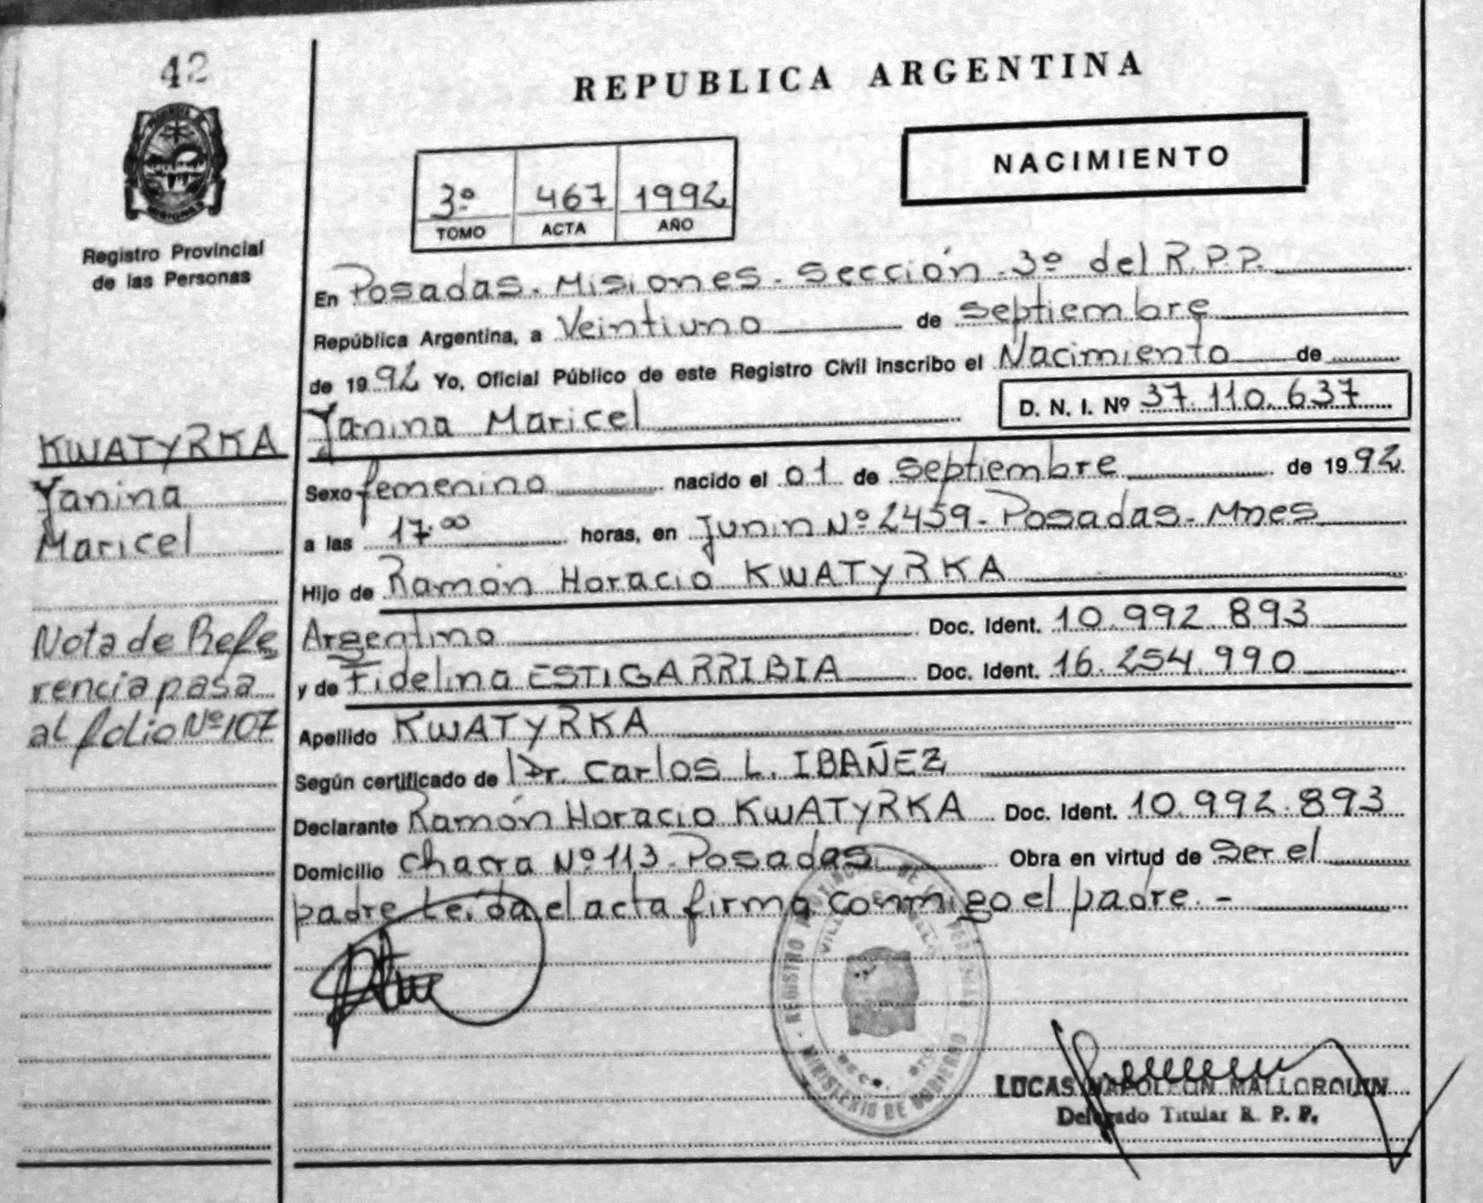 42
Registro Provincial
de las Personas
KWATYRKA
Yanina
Maricel
Nota de Refe
rencia pasa
al folio Nº 107
REPUBLICA ARGENTINA
NACIMIENTO
3º 467 1992
TOMO ACTA AÑO
En Posadas - Misiones - Sección - 3º del R.P.P.
República Argentina, a Veintiuno de septiembre
de 1992 Yo, Oficial Público de este Registro Civil inscribo el Nacimiento de
Yanina Maricel D. N. I. Nº 37.110.637
Sexo femenino nacido el 01 de septiembre de 1992
a las 17.00 horas, en Junin Nº 2459 - Posadas - Mnes
Hijo de Ramón Horacio KWATYRKA
Argentino Doc. Ident. 10.992.893
y de Fidelina ESTIGARRIBIA Doc. Ident. 16.254.990
Apellido KWATYRKA
Según certificado de Dr. Carlos L. IBAÑEZ
Declarante Ramón Horacio KWATYRKA Doc. Ident. 10.992.893
Domicilio Chacra Nº 113 - Posadas Obra en virtud de Ser el
padre Leída el acta firma conmigo el padre. -
REGISTRO PROVINCIAL DE LAS PERSONAS
MINISTERIO DE GOBIERNO
LUCAS NAPOLEON MALLORQUIN
Delegado Titular R. P. P.